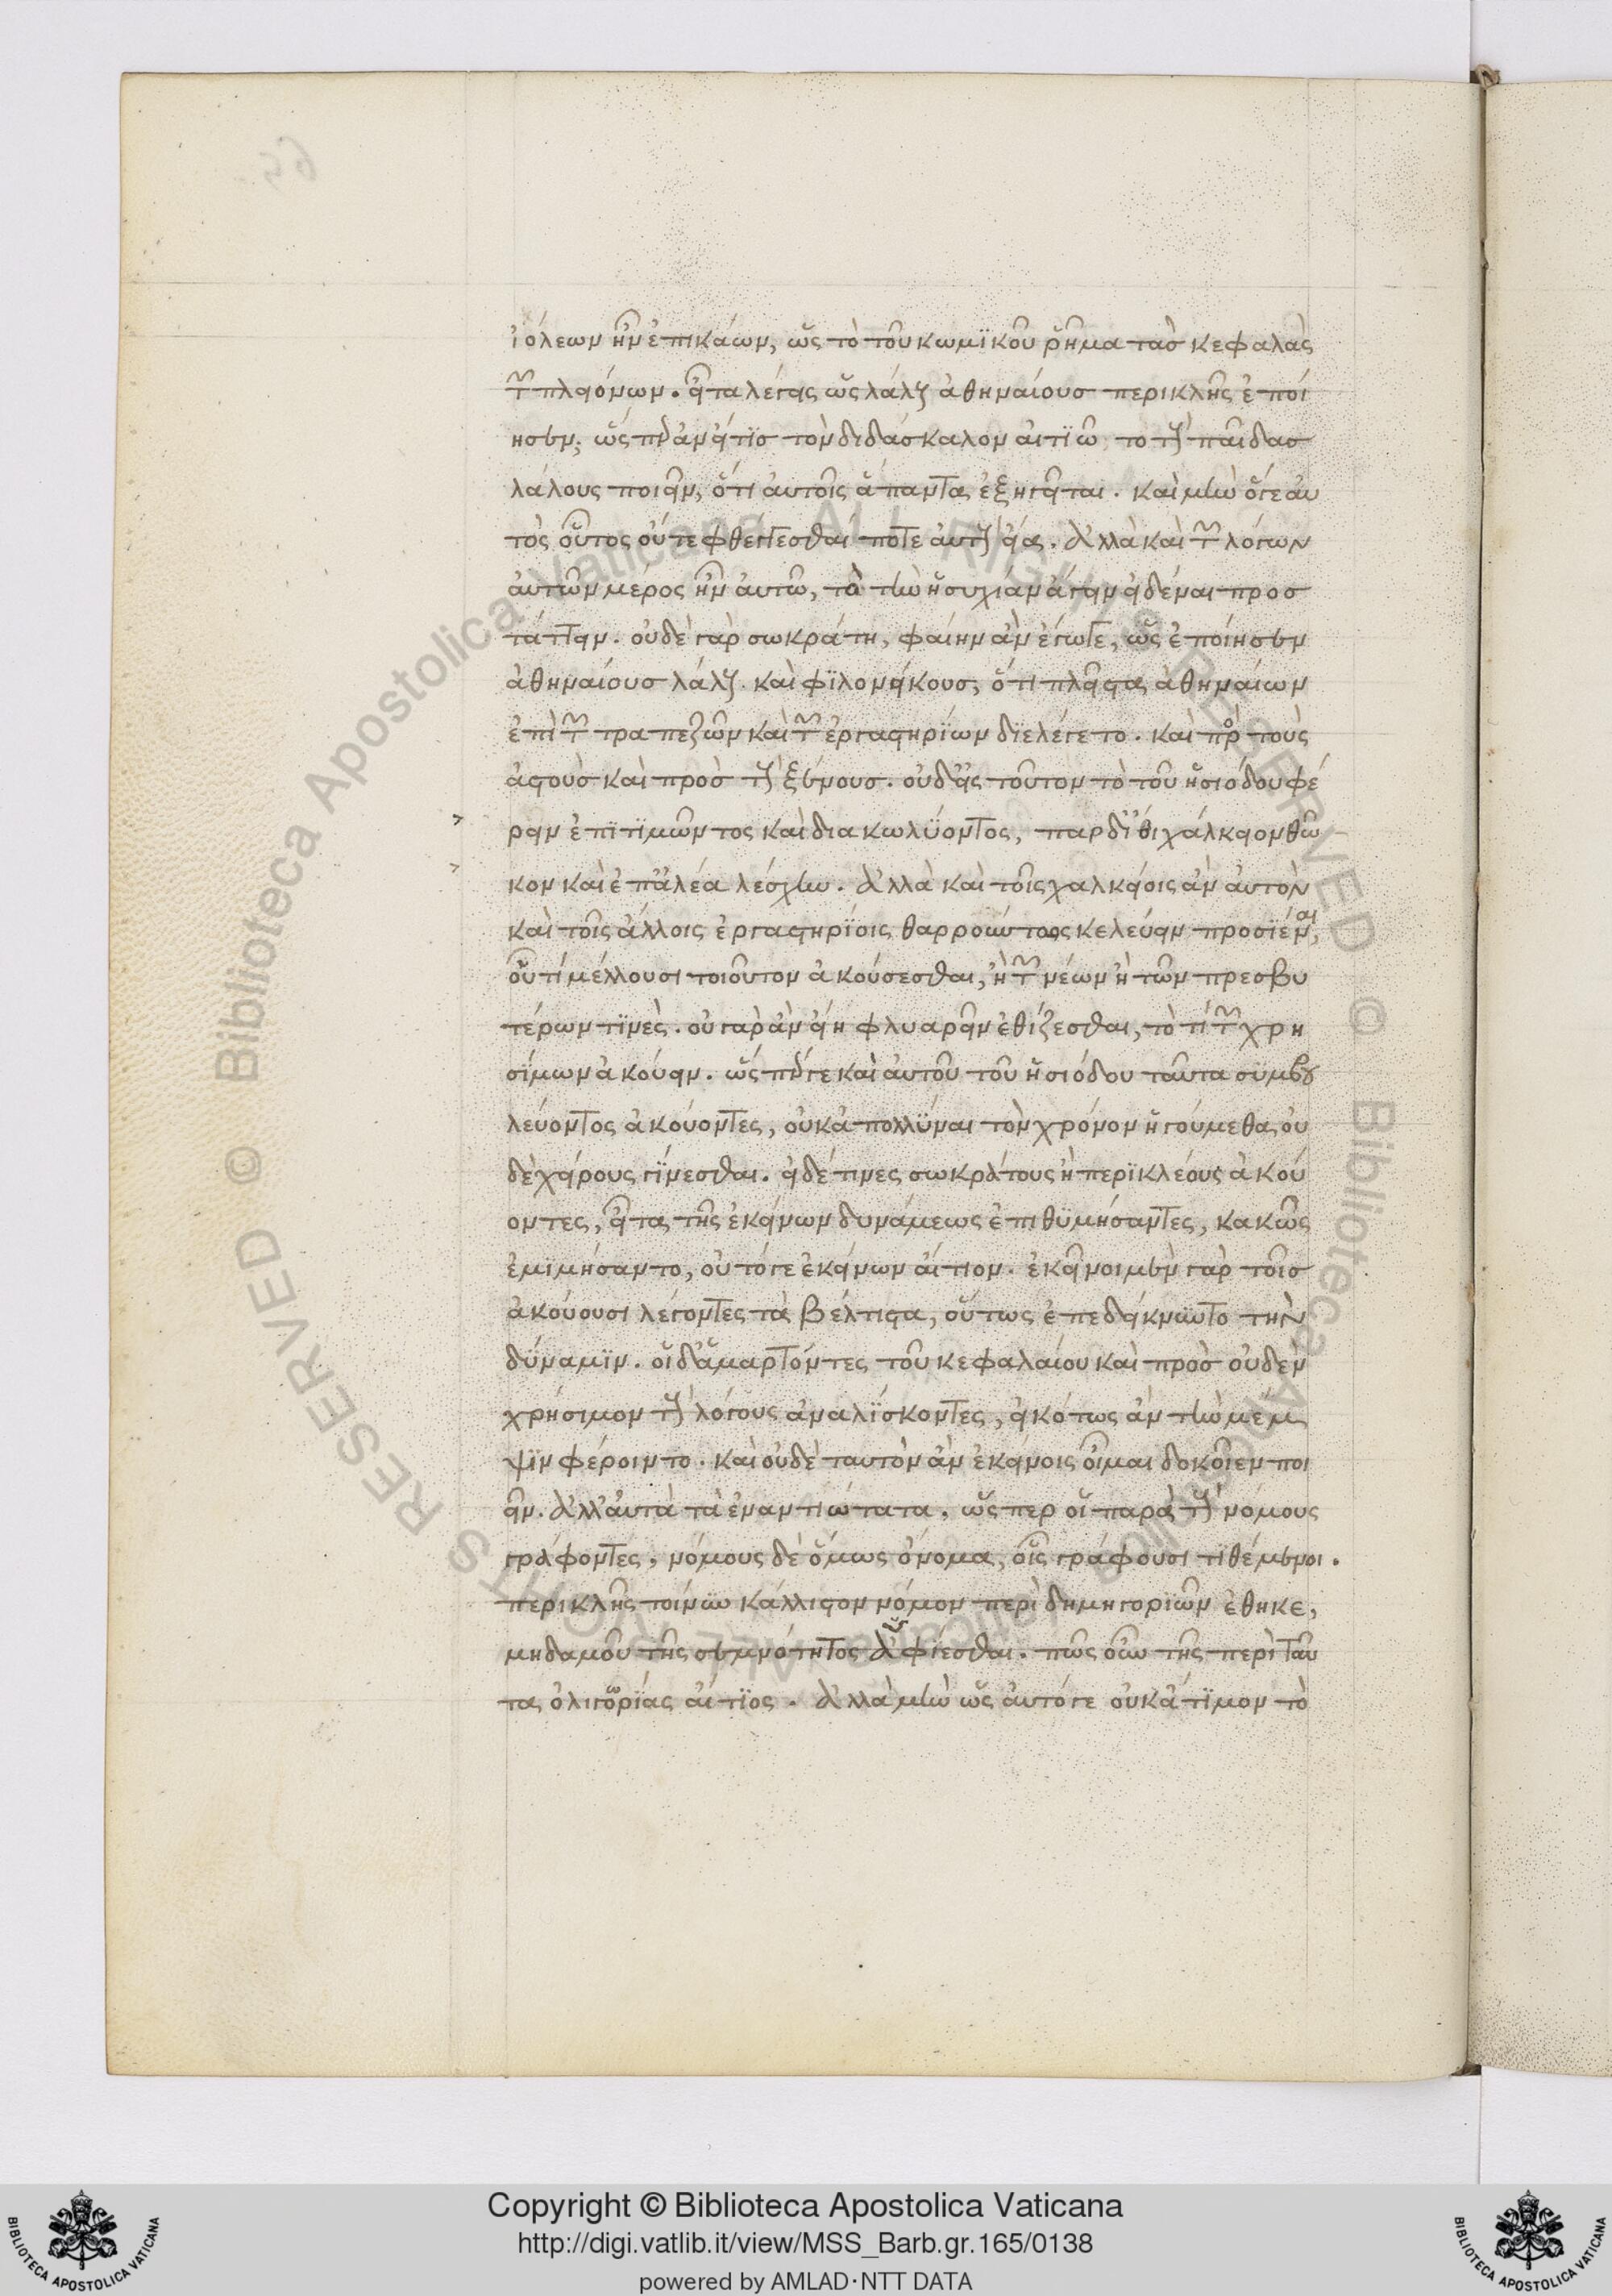 ἰόλεων ἦν ἐπικάων, ὡς τὸ τοῦ κωμϊκοῦ ῥῆμα τὰσ κεφαλὰς
τῶν πλειόνων. εἶτα λέγεις ὡς λάλους ἀθηναίουσ περικλῆς ἐποί
ησεν; ὥσπερ ἂν εἴτϊσ τὸν διδάσκαλον αἰτϊῶ το τοὺς παῖδασ
λάλους ποιεῖν, ὅτι ἀυτοῖς ἅπαντα ἐξηγεῖται. καὶ μὴν ὅγε ἀυ
τὸς οὗτος οὔτε φθέγγεσθαί ποτε ἀυτοὺς εἴα. ἀλλὰ καὶ τῶν λόγων
ἀυτῶν μέρος ἦν ἀυτῶ, τὸ τὴν ἡσυχίαν ἄγειν εἰδέναι προσ
τάττειν. οὐδὲ γὰρ σωκράτη, φαίην ἂν ἔγωγε, ὡς ἐποίησεν
ἀθηναίουσ λάλους καὶ φϊλονείκουσ, ὅτι πλεῖστα ἀθηναίων
ἐπὶ τῶν τραπεζῶν καὶ τῶν ἐργαστηρίων διελέγετο. καὶ πρὸς τοὺς
ἀστοὺσ καὶ προὸσ τοὺς ξένουσ. οὐδεὶς τοῦτον τὸ τοῦ ἡσιόδου φέ
ρειν ἐπϊτϊμῶντος καὶ διακωλύοντος, παρδίθι χάλκειον θῶ
κον καὶ ἐπἀλέα λέσχην. ἀλλὰ καὶ τοῖς χαλκείοις ἂν ἀυτὸν
καὶ τοῖς ἄλλοις ἐργαστηρίοις θαρροῦντος κελεύειν προσϊέναι,
οὗ τί μέλλουσι τοιοῦτον ἀκούσεσθαι, ἢ τῶν νέων ἢ τῶν πρεσβυ
τέρων τϊνὲς. οὐ γὰρ ἂν εἴη φλυαρεῖν ἐθίζεσθαι, τὸ τί τῶν χρη
σίμων ἀκούειν. ὥσπέρ γε καὶ ἀυτοῦ τοῦ ἡσιόδου ταῦτα συμβου
λεύοντος ἀκούοντες, οὐκ ἀπολλύναι τὸν χρόνον ἡγούμεθα, οὐ
δὲ χείρους γίνεσθαι. εἰ δέ τινες σωκράτους ἢ περϊκλέους ἀκού
οντες, εἶτα τῆς ἐκείνων δυνάμεως ἐπιθϋμήσαντες, κακῶς
ἐμϊμήσαντο, οὐ τό γε ἐκείνων αἴτιον. ἐκεῖνοι μὲν γὰρ τοῖσ
ἀκούουσι λέγοντες τὰ βέλτιστα, οὕτως ἐπεδείκνυντο τὴν
δύναμϊν. οἱ δ'ἁμαρτόντες τοῦ κεφαλαίου καὶ προὸσ οὐδὲν
χρήσιμον τοὺς λόγους ἀναλίσκοντες, εἰκότως ἂν τὴν μέμ
ψϊν φέροιντο. καὶ οὐδὲ ταυτὸν ἂν ἐκείνοις οἶμαι δοκοῖεν ποι
εῖν. ἀλλ'ἀυτὰ τὰ ἐναντιώτατα. ὥσπερ οἱ παρὰ τοὺς νόμους
γράφοντες, νόμους δὲ ὅμως ὄνομα, οἷς γράφουσι τιθέμενοι.
περικλῆς τοίνυν κάλλιστον νόμον περὶ δημηγορϊῶν ἔθηκε,
μηδαμοῦ τῆς σεμνότητος ἀυφίεσθαι. πῶς οὖν τῆς περὶ ταῦ
τα ὀλιγωρίας αἴτϊος. ἀλλὰ μὴν ὡς ἀυτό γε οὐκ ἄτϊμον τὸ
Copyright © Biblioteca Apostolica Vaticana
http://digi.vatlib.it/view/MSS_Barb.gr.165/0138
powered by AMLAD·NTT DATA